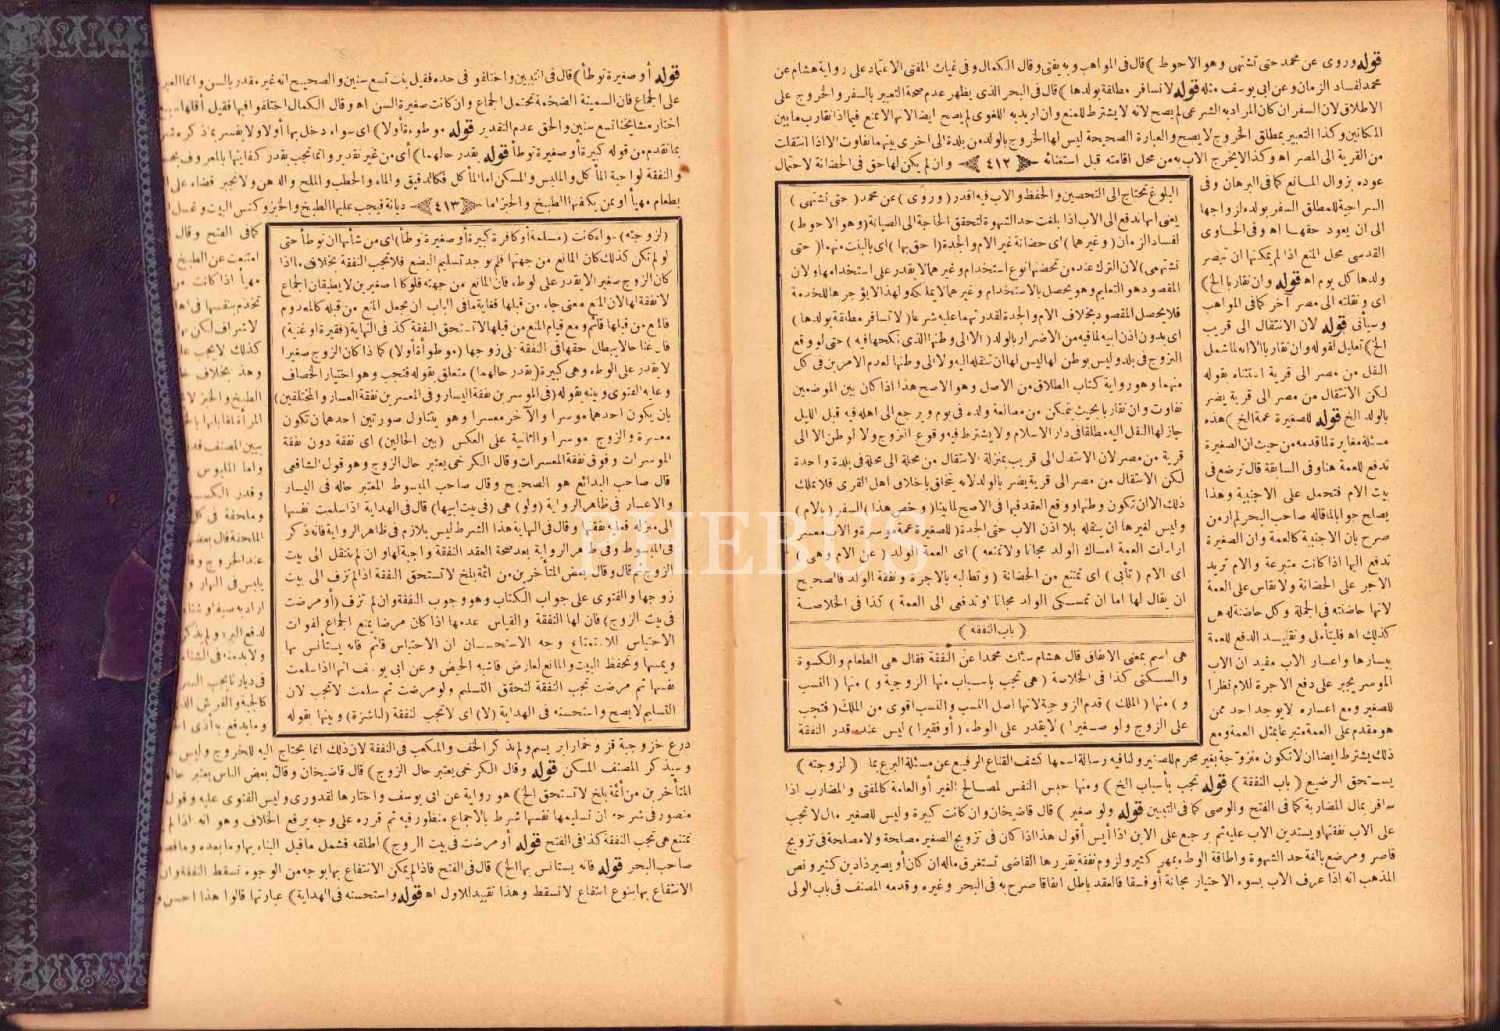 قوله وروى عن محمد حتى تشتهى وهو الاحوط ) قال فى المواهب وبه يفتى وقال الكمال وفى غياث المفتى الاعتماد على رواية هشام عن
محمد لفساد الزمان وعن ابى يوسف مثله قوله لا تسافر مطلقة بولدها ) قال فى البحر الذى يظهر عدم صحة التعبير بالسفر والخروج على
الاطلاق لان السفر ان كان المراد به الشرعى لم يصح لانه لا يشترط للمنع وان اريد به اللغوى لم يصح ايضا لانها لا تمنع فيما اذا تقارب ما بين
المكانين وكذا التعبير بمطلق الخروج لا يصح والعبارة الصحيحة ليس لها الخروج بالولد من بلدة الى اخرى بينهما تفاوت الا اذا انتقلت
من القرية الى المصر اه وكذا لا يخرج الاب به من محل اقامته قبل استغنائه ٤١٢ وان لم يكن لها حق فى الحضانة لاحتمال
عوده بزوال المانع كما فى البرهان وفى
السراجية للمطلق السفر بولده لزواجها
الى ان يعود حقها اه وفى الحاوى
القدسى محل المنع اذا لم يمكنها ان تبصر
ولدها كل يوم اه قوله وان تقاربا الخ )
اى ونقلته الى مصر آخر كما فى المواهب
وسيأتى قوله لان الانتقال الى قريب
الخ ) تعليل لقوله وان تقاربا الا انه لما شمل
النقل من مصر الى قرية استثناه بقوله
لكن الانتقال من مصر الى قرية يضر
بالولد الخ قوله للصغيرة عمة الخ ) هذه
مسئلة مغايرة لما قدمه من حيث ان الصغيرة
تدفع للعمة هنا وفى السابقة قال ترضع فى
بيت الام فتحمل على الاجنبية وهذا
يصلح جوابا لما قاله صاحب البحر لم ار من
صرح بان الاجنبية كالعمة وان الصغيرة
تدفع اليها اذا كانت متبرعة والام تريد
الاجر على الحضانة ولا تقاس على العمة
لانها حاضنته فى الجملة وكل حاضنة له هى
كذلك اه فليتأمل وتقييد الدفع للعمة
بيسارها واعسار الاب مفيد ان الاب
الموسر يجبر على دفع الاجرة للام نظرا
للصغير ومع اعساره لا يوجد احد ممن
هو مقدم على العمة متبرعا بمثل العمة ومع
ذلك يشترط ايضا ان لا تكون متزوجة بغير محرم للصغير ولنا فيه رسالة اسمها كشف القناع الرفيع عن مسئلة التبرع بما
يستحق الرضيع ( باب النفقة ) قوله تجب بأسباب الخ ) ومنها حبس النفس لمصالح الغير أو العامة كالمفتى والمضارب اذا
سافر بمال المضاربة كما فى الفتح والوصى كما فى التبيين قوله ولو صغير ) قال قاضيخان وان كانت كبيرة وليس للصغير مال لا تجب
على الاب نفقتها ويستدين الاب عليه ثم يرجع على الابن اذا أيس أقول هذا اذا كان فى تزويج الصغير مصلحة ولا مصلحة فى تزويج
قاصر ومرضع بالغة حد الشهوة واطاقة الوطء بمهر كثير ولزوم نفقة يقررها القاضى تستغرق ماله ان كان أو يصير ذا دين كثير ونص
المذهب انه اذا عرف الاب بسوء الاختيار مجانة أو فسقا فالعقد باطل اتفاقا صرح به فى البحر وغيره وقدمه المصنف فى باب الولى
البلوغ تحتاج الى التحصين والحفظ والاب فيه اقدر ( وروى ) عن محمد ( حتى تشتهى )
يعنى انها تدفع الى الاب اذا بلغت حد الشهوة لتحقق الحاجة الى الصيانة ( وهو الاحوط )
لفساد الزمان ( وغيرهما ) اى حضانة غير الام والجدة ( احق بها ) اى بالبنت منهما ( حتى
تشتهى ) لان الترك عند من تحضنها نوع استخدام وغيرهما لا يقدر على استخدامها ولان
المقصود هو التعليم وهو يحصل بالاستخدام وغيرهما لا يملكه ولهذا لا يؤجرها للخدمة
فلا يحصل المقصود بخلاف الام والجدة لقدرتهما عليه شرعا ( لا تسافر مطلقة بولدها )
اى بدون اذن ابيه لما فيه من الاضرار بالولد ( الا الى وطنها الذى نكحها فيه ) حتى لو وقع
التزوج فى بلد وليس بوطن لها ليس لها ان تنقله اليه ولا الى وطنها لعدم الامرين فى كل
منهما وهو رواية كتاب الطلاق من الاصل وهو الاصح هذا اذا كان بين الموضعين
تفاوت وان تقاربا بحيث يتمكن من مطالعة ولده فى يوم ويرجع الى اهله فيه قبل الليل
جاز لها النقل اليه مطلقا فى دار الاسلام ولا يشترط فيه وقوع التزوج ولا الوطن الا الى
قرية من مصر لان الانتقال الى قريب بمنزلة الانتقال من محلة الى محلة فى بلدة واحدة
لكن الانتقال من مصر الى قرية يضر بالولد لانه يتخلق باخلاق اهل القرى فلا تملك
ذلك الا ان تكون وطنها ووقع العقد فيها فى الاصح لما بينا ( وخص هذا ) السفر ( بالام )
وليس لغيرها ان ينقله بلا اذن الاب حتى الجدة ( للصغيرة عمة موسرة والاب معسر
ارادت العمة امساك الولد مجانا ولا تمنعه ) اى العمة الولد ( عن الام وهى )
اى الام ( تأبى ) اى تمتنع من الحضانة ( وتطالبه بالاجرة ونفقة الولد فالصحيح
ان يقال لها اما ان تمسكى الولد مجانا او تدفعى الى العمة ) كذا فى الخلاصة
( باب النفقة )
هى اسم بمعنى الانفاق قال هشام سئلت محمدا عن النفقة فقال هى الطعام والكسوة
والسكنى كذا فى الخلاصة ( هى تجب باسباب منها الزوجية و ) منها ( النسب
و ) منها ( الملك ) قدم الزوجية لانها اصل النسب والنسب اقوى من الملك ( فتجب
على الزوج ولو صغيرا ) لا يقدر على الوطء ( أو فقيرا ) ليس عنده قدر النفقة
( لزوجته )
قوله أو صغيرة توطأ ) قال فى التبيين واختلفوا فى حده فقيل بنت تسع سنين والصحيح انه غير مقدر بالسن وانما العبرة
على الجماع فان السمينة الضخمة تحتمل الجماع وان كانت صغيرة السن اه وقال الكمال اختلفوا فيها فقيل أقلها سبع
اختار مشايخنا تسع سنين والحق عدم التقدير قوله موطوءة أولا ) اى سواء دخل بها أولا ولا يفسر بما ذكر
بما تقدم من قوله كبيرة أو صغيرة توطأ قوله بقدر حالهما ) أى من غير تقدير وانما تجب بقدر كفايتها بالمعروف
والنفقة لواجبة المأكل والملبس والمسكن اما المأكل فكالدقيق والماء والحطب والملح والدهن ولا تجبر قضاء على
بطعام مهيأ أو بمن يكفيها الطبخ والخبز اما ٤١٣ ديانة فيجب عليها الطبخ والخبز وكنس البيت وغسل
كما فى الفتح وقال
امتنعت عن الطبخ
مهيأ اذا كانت
تخدم بنفسها فى
لاشراف لكن
كذلك لا يجب
وهذ بخلاف
الطبخ والخبز
المرأة فاباتها
يبين المصنف قدر
واما الملبوس
وقدر
وملحفة فى كل
الملحفة قال بعض
عند الخروج
يلبس فى النهار
اراد به صيفا
لدفع البرد ولم يذكر
ولا بد منه فى الشتاء
فى ديارنا يجب
كالجبة والفرش
وما يدفع به أذى
درع خز وجبة قز وخمار ابريسم ولم يذكر الخف والمكعب فى النفقة لان ذلك انما يحتاج اليه للخروج وليس
وسيذكر المصنف المسكن قوله وقال الكرخى يعتبر حال الزوج ) قال قاضيخان وقال بعض الناس يعتبر
المتأخرين من أئمة بلخ لا تستحق الخ ) هو رواية عن ابى يوسف واختارها لقدورى وليس الفتوى عليه وقول
منصور فى شرحه ان تسليمها نفسها شرط بالاجماع منظور فيه ثم قرره على وجه يرفع الخلاف وهو انه اذا لم
تمتنع هى تجب النفقة كذا فى الفتح قوله أو مرضت فى بيت الزوج ) اطلقه فشمل ما قبل البناء بها وما بعده
صاحب البحر قوله فانه يستأنس بها الخ ) قال فى الفتح فاذا لم يمكن الانتفاع بها بوجه من الوجوه تسقط النفقة وان
الانتفاع بها بنوع انتفاع لا تسقط وهذا تقييد للاول اه قوله واستحسنه فى الهداية ) عبارتها قالوا هذا احسن
( لزوجته ) سواء كانت ( مسلمة أو كافرة كبيرة أو صغيرة توطأ ) اى من شأنها ان توطأ حتى
لو لم تكن كذلك كان المانع من جهتها فلم يوجد تسليم البضع فلا تجب النفقة بخلاف ما اذا
كان الزوج صغيرا لا يقدر على لوطء فان المانع من جهته فلو كانا صغيرين لا يطيقان الجماع
لا نفقة لها لان المنع معنى جاء من قبلها فغاية ما فى الباب ان يجعل المنع من قبله كالمعدوم
فالمنع من قبلها قائم ومع قيام المنع من قبلها لا تستحق النفقة كذ فى النهاية ( فقيرة او غنية )
فان غناها لا يبطل حقها فى النفقة على زوجها ( موطوأة أولا ) كما ذا كان الزوج صغيرا
لا يقدر على الوطء وهى كبيرة ( بقدر حالهما ) متعلق بقوله فتجب وهو اختيار الخصاف
وعليه الفتوى وبينه بقوله ( فى الموسرين نفقة اليسار وفى المعسرين نفقة العسار والمختلفين )
بان يكون احدهما موسرا والآخر معسرا وهو يتناول صورتين احدهما ان تكون
معسرة والزوج موسرا والثانية على العكس ( بين الحالين ) اى نفقة دون نفقة
الموسرات وفوق نفقة المعسرات وقال الكرخى يعتبر حال الزوج وهو قول الشافعى
قال صاحب البدائع هو الصحيح وقال صاحب المبسوط المعتبر حاله فى اليسار
والاعسار فى ظاهر الرواية ( ولو ) هى ( فى بيت ابيها ) قال فى الهداية اذا سلمت نفسها
الى منزله فعليه نفقتها وقال فى النهاية هذا الشرط ليس بلازم فى ظاهر الرواية فانه ذكر
فى المبسوط وفى ظاهر الرواية بعد صحة العقد النفقة واجبة لها وان لم تنتقل الى بيت
الزوج ثم قال وقال بعض المتأخرين من ائمة بلخ لا تستحق النفقة اذا لم تزف الى بيت
زوجها والفتوى على جواب الكتاب وهو وجوب النفقة وان لم تزف ( أو مرضت
فى بيت الزوج ) فان لها النفقة والقياس عدمها اذا كان مرضا يمنع الجماع لفوات
الاحتباس للاستمتاع وجه الاستحسان ان الاحتباس قائم فانه يستأنس بها
ويمسها وتحفظ البيت والمانع لعارض فاشبه الحيض وعن ابى يوسف انها اذا سلمت
نفسها ثم مرضت تجب النفقة لتحقق التسليم ولو مرضت ثم سلمت لا تجب لان
التسليم لا يصح واستحسنه فى الهداية ( لا ) اى لا تجب لنفقة ( لناشزة ) وبينها بقوله
PHEBUS